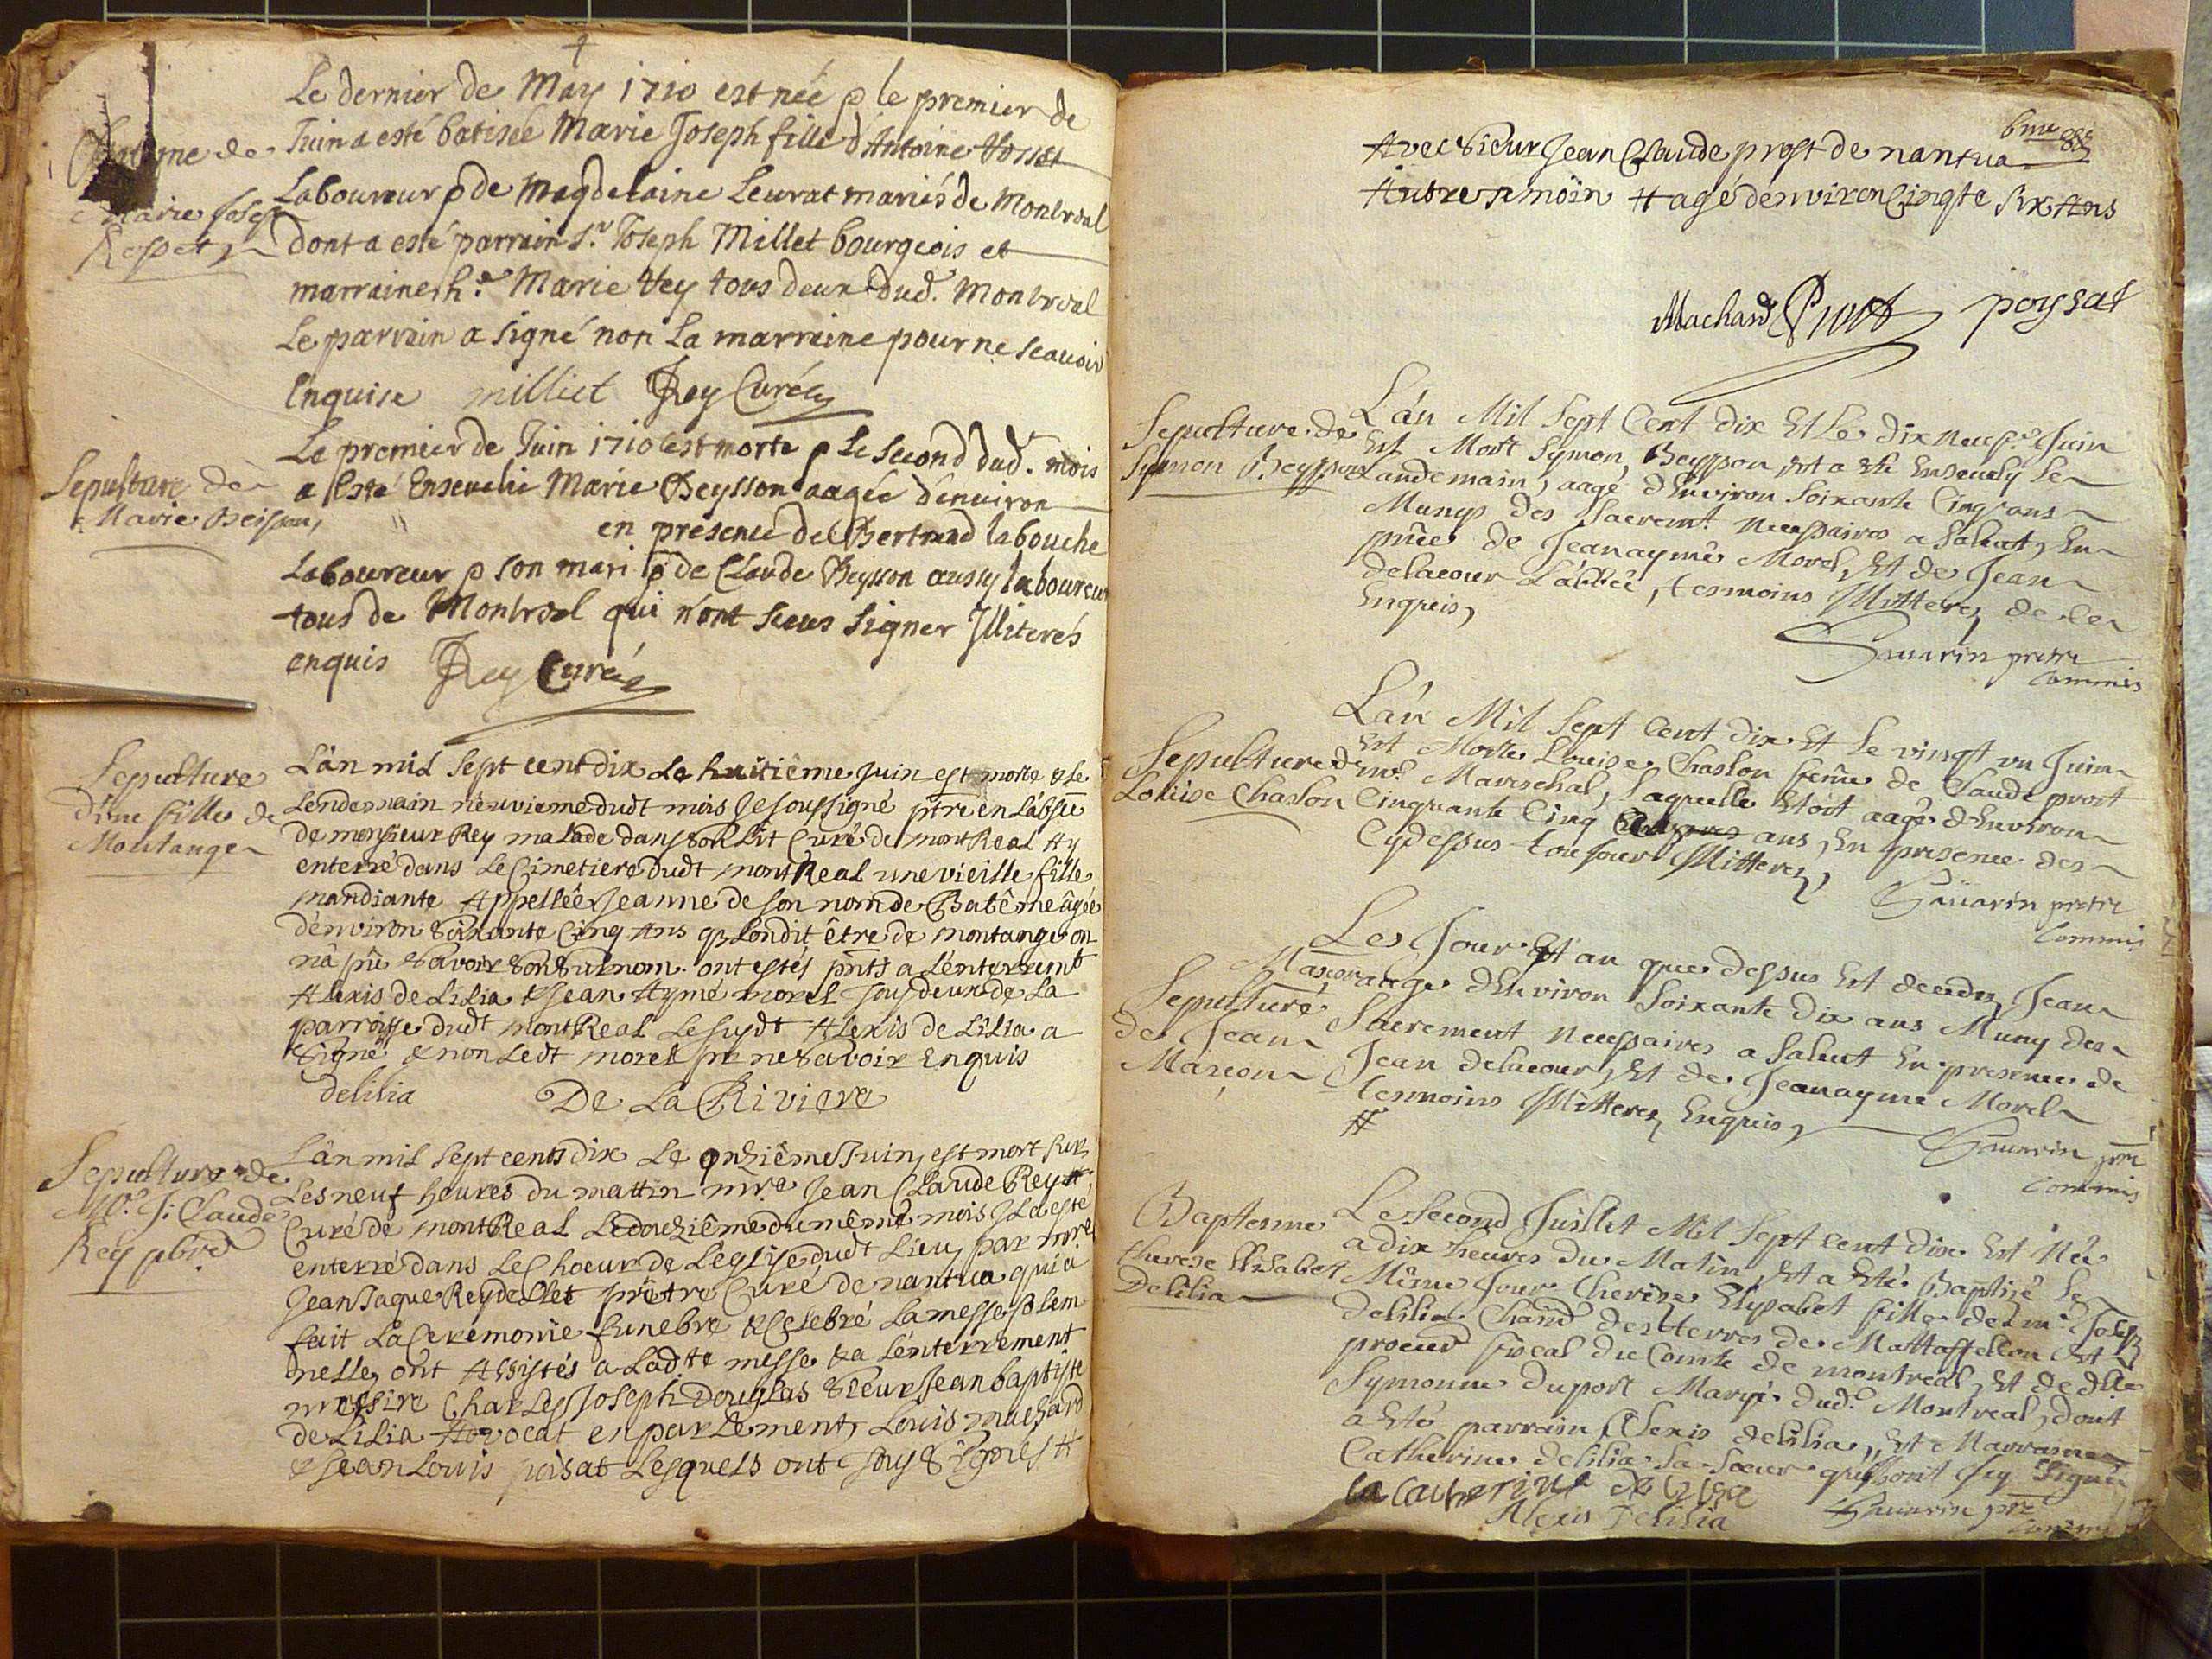 Le dernier de May 1710 est née & le premier de
Juin a esté batisée Marie Joseph fille d'Antoine
Marie Joseph
Laboureur & de Magdelaine Leurat mariés de Montreal
dont a esté parrain Sr. Joseph Millet bourgeois et
marraine h.e Marie Vey tous deux dud. Montreal
Le parrain a signé non La marraine pour ne scauoir
Enquise milliet Rey Curé
Sepulture de
Marie Beisson,
Le premier de Juin 1710 est morte & Le second dud. mois
a Esté Enseuelie Marie Beysson aagée d'enuiron
en présence de Bertrand labouche
Laboureur & son mari & de Claude Beysson aussy laboureur
tous de Montreal qui n'ont sceus signer Illiterés
enquis Rey Curé
Sepulture
d'une fille de
Montange
L'an mil sept cent dix Le huitième Juin est morte & Le
Lendemain neuvieme dudt mois Je soussigné ptre en L'absce
de monsieur Rey malade dans son Lit Curé de montReal Ay
enterré dans Le Cimetiere dudt montReal une vieille fille
mandiante Appellée Jeanne de son nom de Batême âgée
d'environ Soixante Cinq Ans q. Londit être de montange on
n'a pû Savoir Son Surnom. ont estés pnts a L'enterremt
Alexis de Lilia & Jean Aymé morel tous deux de La
parroisse dudt montReal Le susdt Alexis de Lilia a
Signé & non Ledt morel pr ne Savoir Enquis
delilia De La Riviere
Sepulture de
Mr. J. Claude
Rey pbre
L'an mil sept cents dix Le onzième Juin, est mort sur
Les neuf heures du mattin mre Jean Claude Rey #
Curé de montReal Le douzième du même mois Il a esté
enterré dans Le Choeur de L'eglise dudt Lieu par mre
Jean Jaque Reydellet prêtre Curé de nantua qui a
fait La Ceremonie funebre & Celebré La messe solem
nelle, ont Assistés a Ladte messe & a L'enterrement
messire Charles Joseph Douglas Sieur Jean baptiste
de Lilia Avocat en parlement, Louis machard
& Jean Louis poisat Lesquels ont tous Signés #
Avec Sieur Jean Claude prost de nantua
Autre témoin # agé d'environ Cinqte six Ans
Machard Prost poysat
Sepulture de
Symon Beysson
L'an Mil Sept Cent dix Et Le dix neuf Juin
Est Mort Symon Beysson, Et a Eté Enseuely Le
Landemain, aagé d'Enuiron Soixante Cinq ans
Munys des Sacremt. necessaires a Salut, En
pnce de Jeanaymé Morel, Et de Jean
delacour L'abbéé, tesmoins Illitterez de ce
Enquis,
Sauarin pretre
Commis
Sepulture de
Louise Chaslon
L'an Mil Sept Cent dix Et Le vingt vn Juin
Est Morte Louise Chaslon feme de Claude prost
Mareschal, Laquelle Etoit aagé d'Enuiron
Cinquante Cinq ans, En presence des
Cydessus tousjour Illitterez,
Sauarin pretre
Commis
Sepulture
de Jean
Marcon
Les Jour Et an que dessus Est decedé, Jean
Marcon aagé d'Enuiron Soixante dix ans Muny des
Sacrement necessaires a Salut En presence de
Jean delacour, Et de Jeanayme Morel
tesmoins Illitterez Enquis,
#
Sauarin
Commis
Baptesme
therese Elisabet
Delilia
Le Second Juillet Mil Sept cent dix Est Née
a dix heures du Matin, Et a Eté Baptizé Le
Même Jour therèze Elysabet fille de mr Joseph
delilia Chatd des terres de Mattaffellon Et
procur fiscal du Comté de montreal, Et de dlle
Symonne duport Maryé dud. Montreal, dont
a Eté parrain Alexis delilia, Et Marraine
Catherine delilia sa Soeur qui sont Icy Signé
Catherine de Lilia
Alexis Delilia
Sauarin